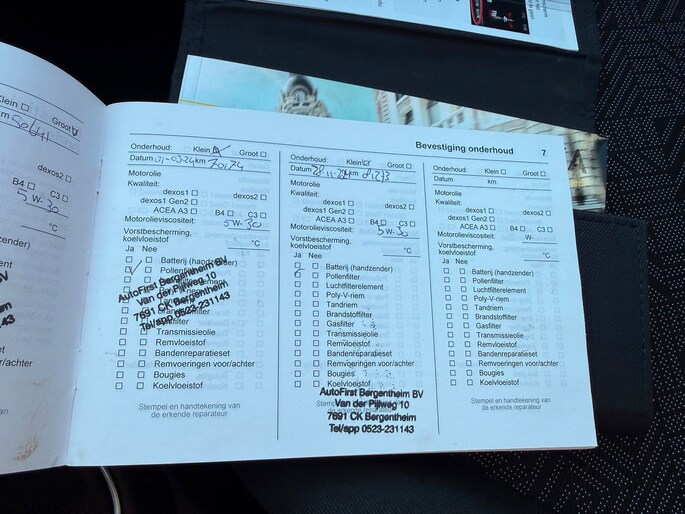 Klein ☐
Groot
km 50641
dexos2 ☐
B4 ☐ C3 ☐
5W-30
°C
Bevestiging onderhoud 7
Onderhoud: Klein ☑ Groot ☐
Datum 01-03-24 km 70174
Motorolie
Kwaliteit:
dexos1 ☐ dexos2 ☐
dexos1 Gen2 ☐
ACEA A3 ☐ B4 ☐ C3 ☐
Motorolieviscositeit: 5W-30
Vorstbescherming, koelvloeistof °C
Ja Nee
Batterij (handzender)
Pollenfilter
Transmissieolie
Remvloeistof
Bandenreparatieset
Remvoeringen voor/achter
Bougies
Koelvloeistof
AutoFirst Bergentheim BV
Van der Pijlweg 10
7691 CK Bergentheim
Tel/app 0523-231143
Stempel en handtekening van
de erkende reparateur
Onderhoud: Klein ☑ Groot ☐
Datum km 81273
Motorolie
Kwaliteit:
dexos1 ☐ dexos2 ☐
dexos1 Gen2 ☐
ACEA A3 ☐ B4 ☐ C3 ☐
Motorolieviscositeit: 5W-30
Vorstbescherming,
koelvloeistof °C
Ja Nee
Batterij (handzender)
Pollenfilter
Luchtfilterelement
Poly-V-riem
Tandriem
Brandstoffilter
Gasfilter
Transmissieolie
Remvloeistof
Bandenreparatieset
Remvoeringen voor/achter
Bougies
Koelvloeistof
AutoFirst Bergentheim BV
Van der Pijlweg 10
7691 CK Bergentheim
Tel/app 0523-231143
Onderhoud: Klein ☐ Groot ☐
Datum km
Motorolie
Kwaliteit:
dexos1 ☐ dexos2 ☐
dexos1 Gen2 ☐
ACEA A3 ☐ B4 ☐ C3 ☐
Motorolieviscositeit: W-
Vorstbescherming,
koelvloeistof °C
Ja Nee
Batterij (handzender)
Pollenfilter
Luchtfilterelement
Poly-V-riem
Tandriem
Brandstoffilter
Gasfilter
Transmissieolie
Remvloeistof
Bandenreparatieset
Remvoeringen voor/achter
Bougies
Koelvloeistof
Stempel en handtekening van
de erkende reparateur